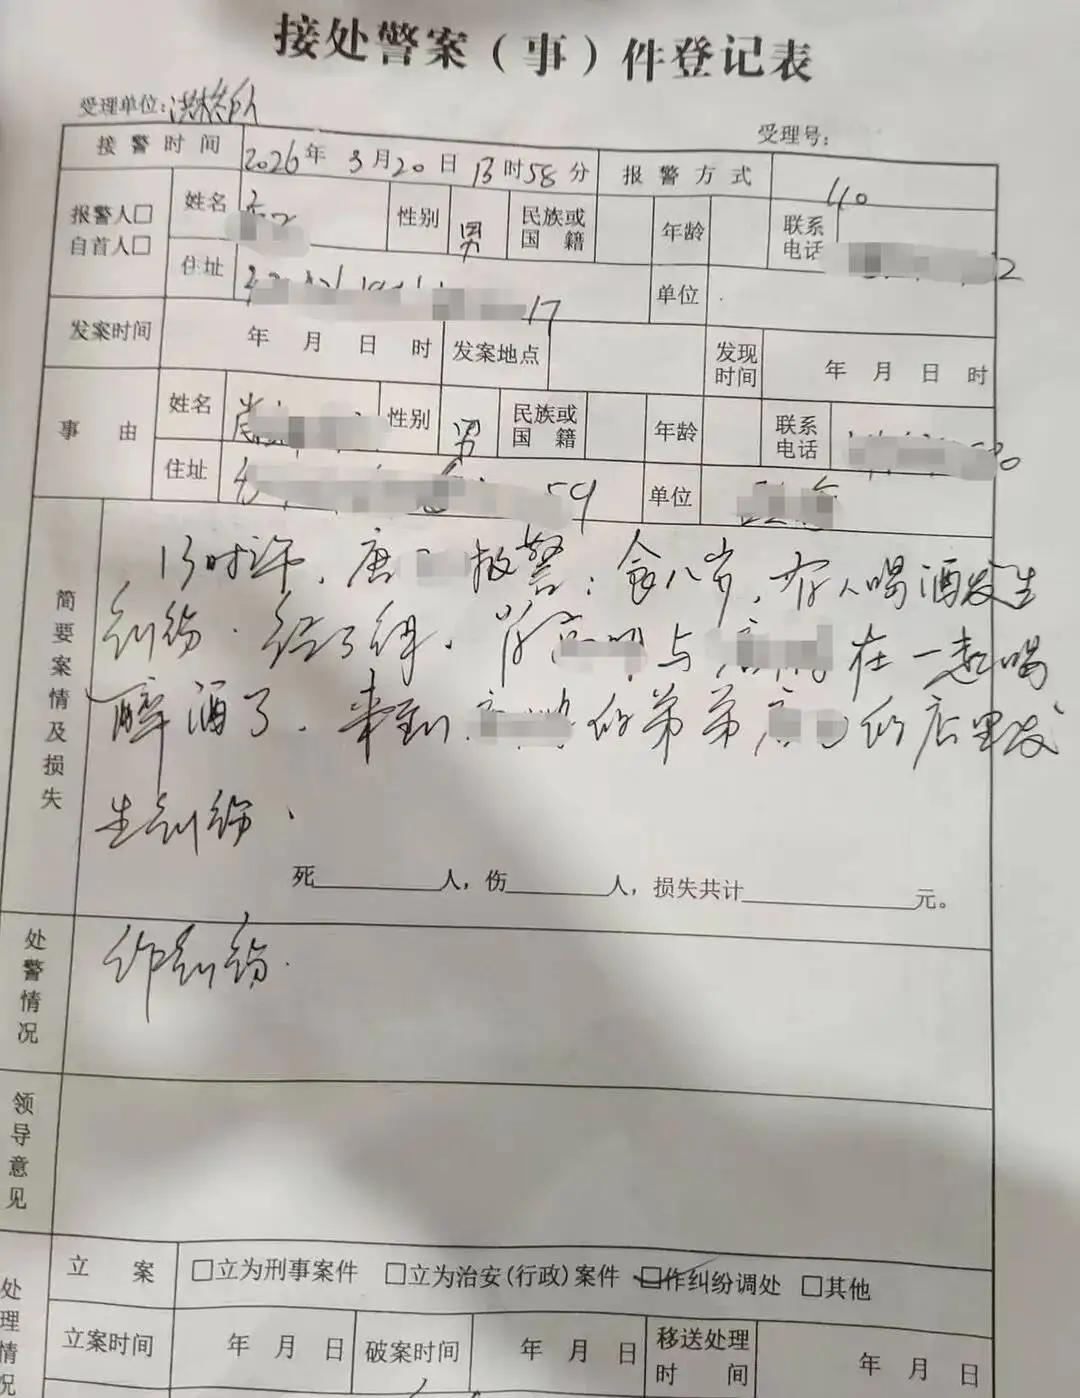 接处警案（事）件登记表
受理单位: 所
受理号:
接警时间 2026年 3月20日 13时58分 报警方式 110
报警人□ 姓名 性别 男 民族或国籍 年龄 联系电话 2
自首人□ 住址 17 单位
发案时间 年 月 日 时 发案地点 发现时间 年 月 日 时
事由 姓名 性别 男 民族或国籍 年龄 联系电话
住址 59 单位
简要案情及损失
13时许，唐 报警: 有人喝酒发生
纠纷. 经了解, 与 在一起喝
醉酒了. 来到 的弟弟 的店里发
生纠纷.
死 人，伤 人，损失共计 元。
处警情况 作纠纷.
领导意见
处理情况
立案 □立为刑事案件 □立为治安(行政)案件 □作纠纷调处 □其他
立案时间 年 月 日 破案时间 年 月 日 移送处理时间 年 月 日